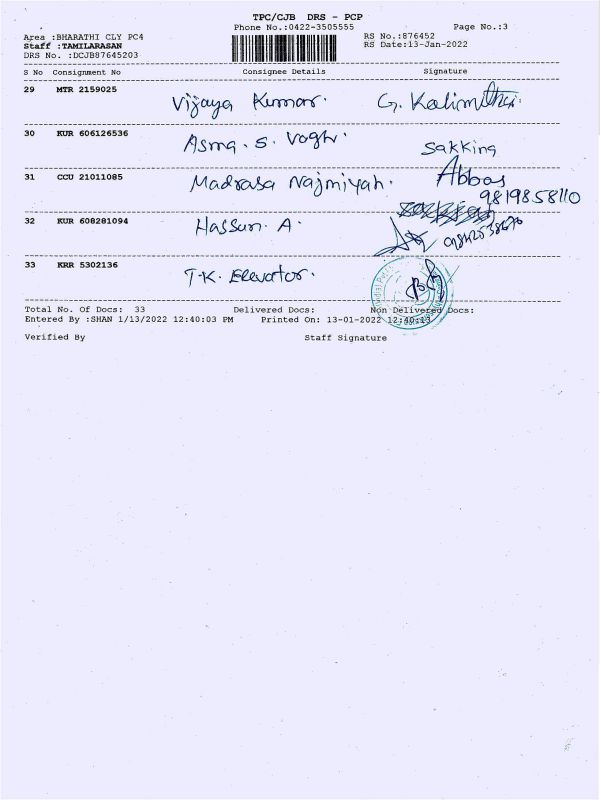 TPC/CJB DRS - PCP
Phone No.:0422-3505555 Page No.:3
Area :BHARATHI CLY PC4 RS No.:876452
Staff :TAMILARASAN RS Date:13-Jan-2022
DRS No. :DCJB87645203
S No Consignment No Consignee Details Signature
29 MTR 2159025 Vijaya Kumar. G.
30 KUR 606126536 Asma. S.
Sakkina
31 CCU 21011085 Madrasa Najmiyah. Abbas
9819858110
32 KUR 608281094 Hassun. A.
33 KRR 5302136 T.K. Elevator.
Total No. Of Docs: 33 Delivered Docs: Non Delivered Docs:
Entered By :SHAN 1/13/2022 12:40:03 PM Printed On: 13-01-2022 12:40:13
Verified By Staff Signature